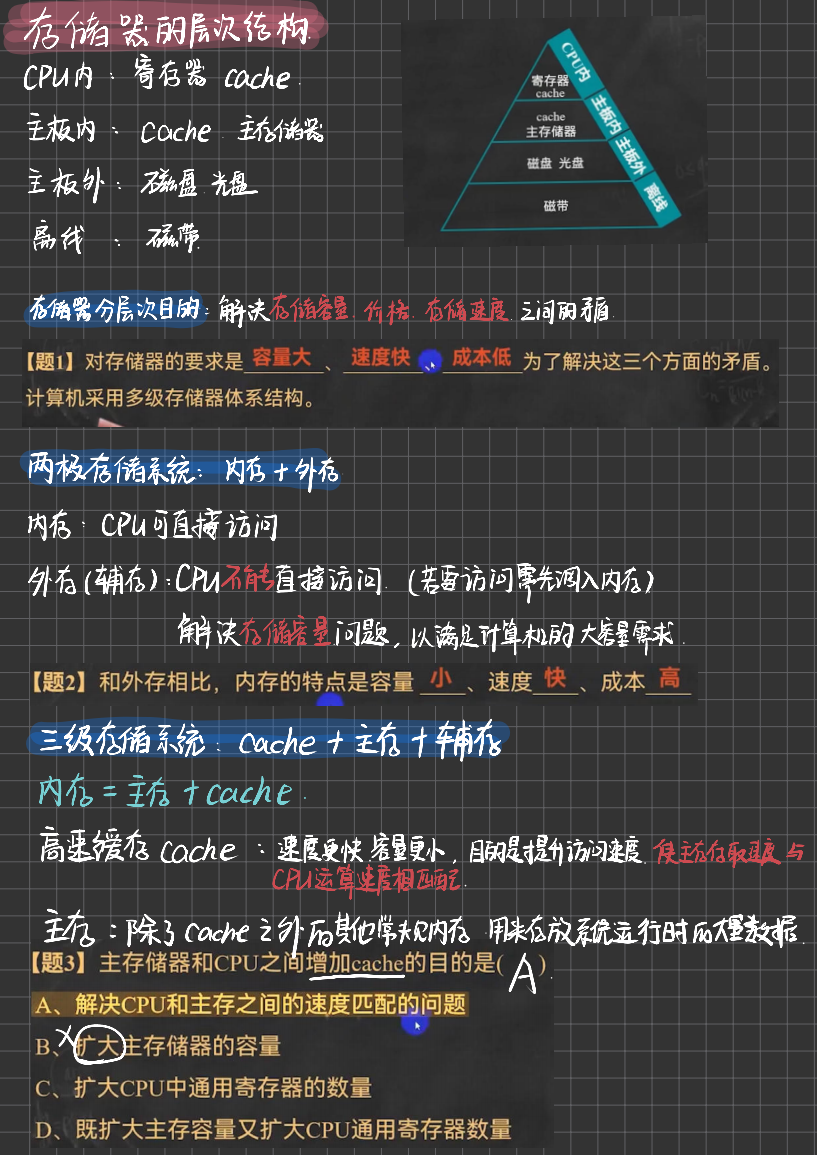 存储器的层次结构
CPU内：寄存器 cache
主板内：cache 主存储器
主板外：磁盘 光盘
离线：磁带
寄存器
cache
cache
主存储器
磁盘 光盘
磁带
CPU内
主板内
主板外
离线
存储器分层次目的：解决存储容量、价格、存储速度之间的矛盾
【题1】对存储器的要求是 容量大 、 速度快 成本低 为了解决这三个方面的矛盾。
计算机采用多级存储器体系结构。
两极存储系统：内存+外存
内存：CPU可直接访问
外存(辅存)：CPU不能直接访问.(若要访问需先调入内存)
解决存储容量问题，以满足计算机的大容量需求.
【题2】和外存相比，内存的特点是容量 小 、速度 快 、成本 高
三级存储系统：cache+主存+辅存
内存=主存+cache.
高速缓存cache：速度更快 容量更小，目的是提升访问速度.使主存存取速度与
CPU运算速度相匹配.
主存：除了cache之外的其他常规内存 用来存放系统运行时的大量数据.
【题3】主存储器和CPU之间增加cache的目的是( A )
A、解决CPU和主存之间的速度匹配的问题
B、扩大主存储器的容量
C、扩大CPU中通用寄存器的数量
D、既扩大主存容量又扩大CPU通用寄存器数量